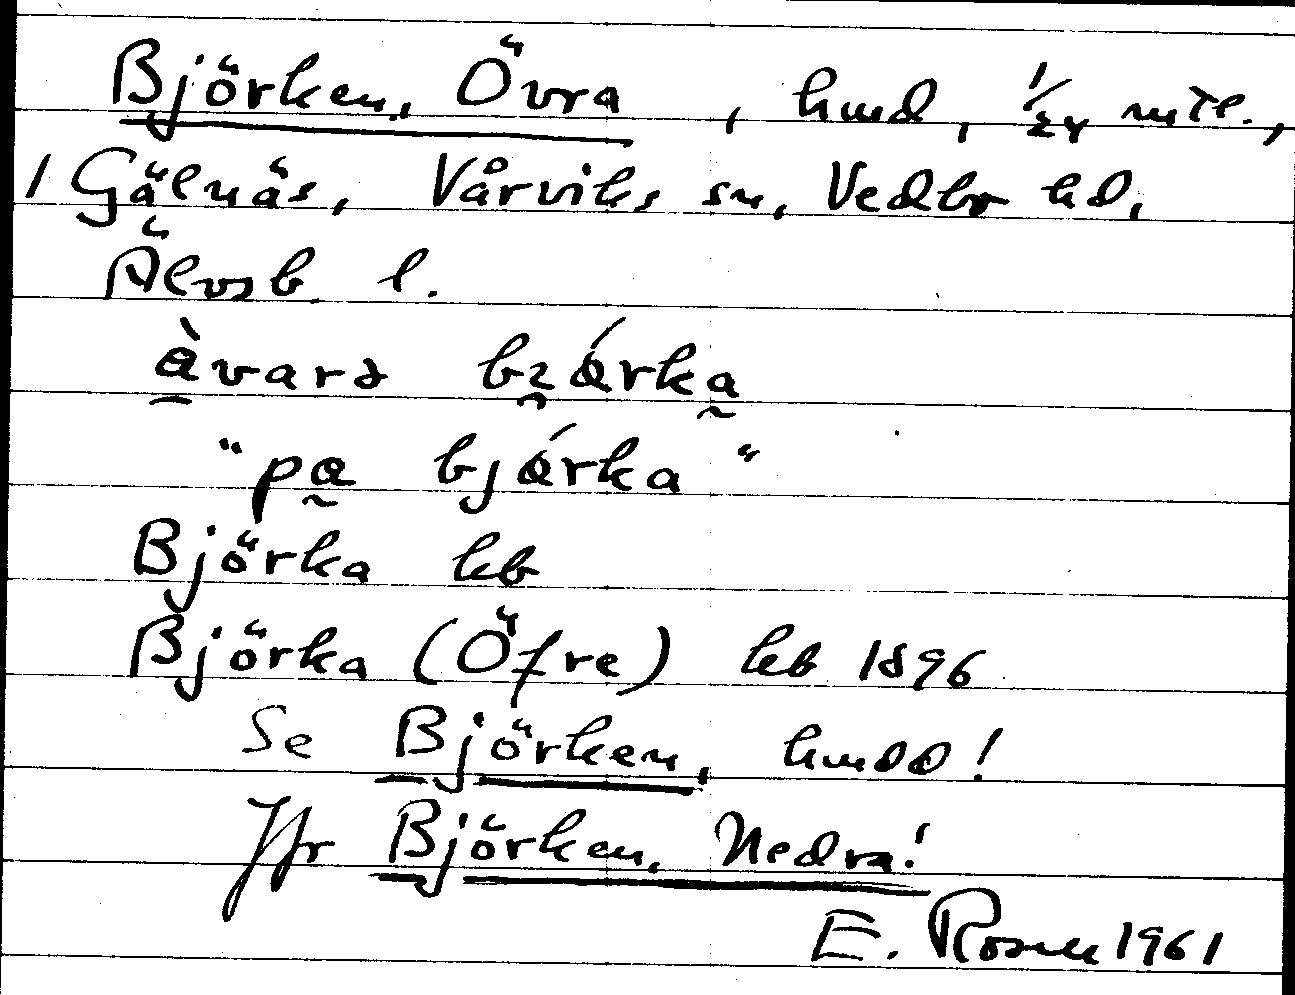 Björken, Övra, hmd, 1/24 mtl.,
1 Gälnäs, Vårviks sn, Vedbo hd,
Älvsb. l.
"på bjårka"
Björka kb
Björka (Öfre) kb 1896
Se Björken, hmdd!
Jfr Björken, Nedra!
E. Rosell 1961